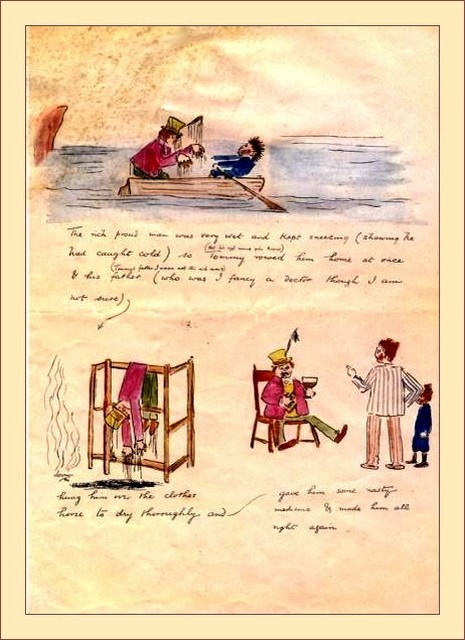 The rich proud man was very wet and kept sneezing (showing he
had caught cold) so Tommy rowed him home at once
& his father (who was I fancy a doctor though I am
(Tommy's father I mean not the rich man's)
not sure)
hung him over the clothes
horse to dry thoroughly and
gave him some nasty
medicine & made him all
right again